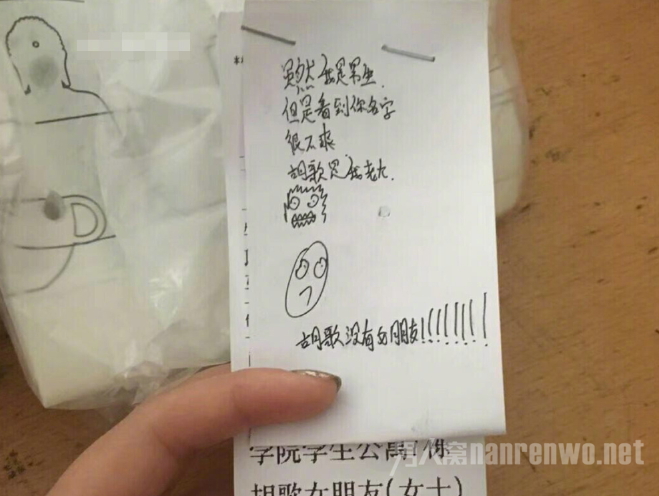 虽然我是男生
但是看到你名字
很不爽
胡歌是我老大.
胡歌没有女朋友!!!!!!!!!
学院学生公寓/佛
胡歌女朋友(女士)
男人窝nanrenwo.net